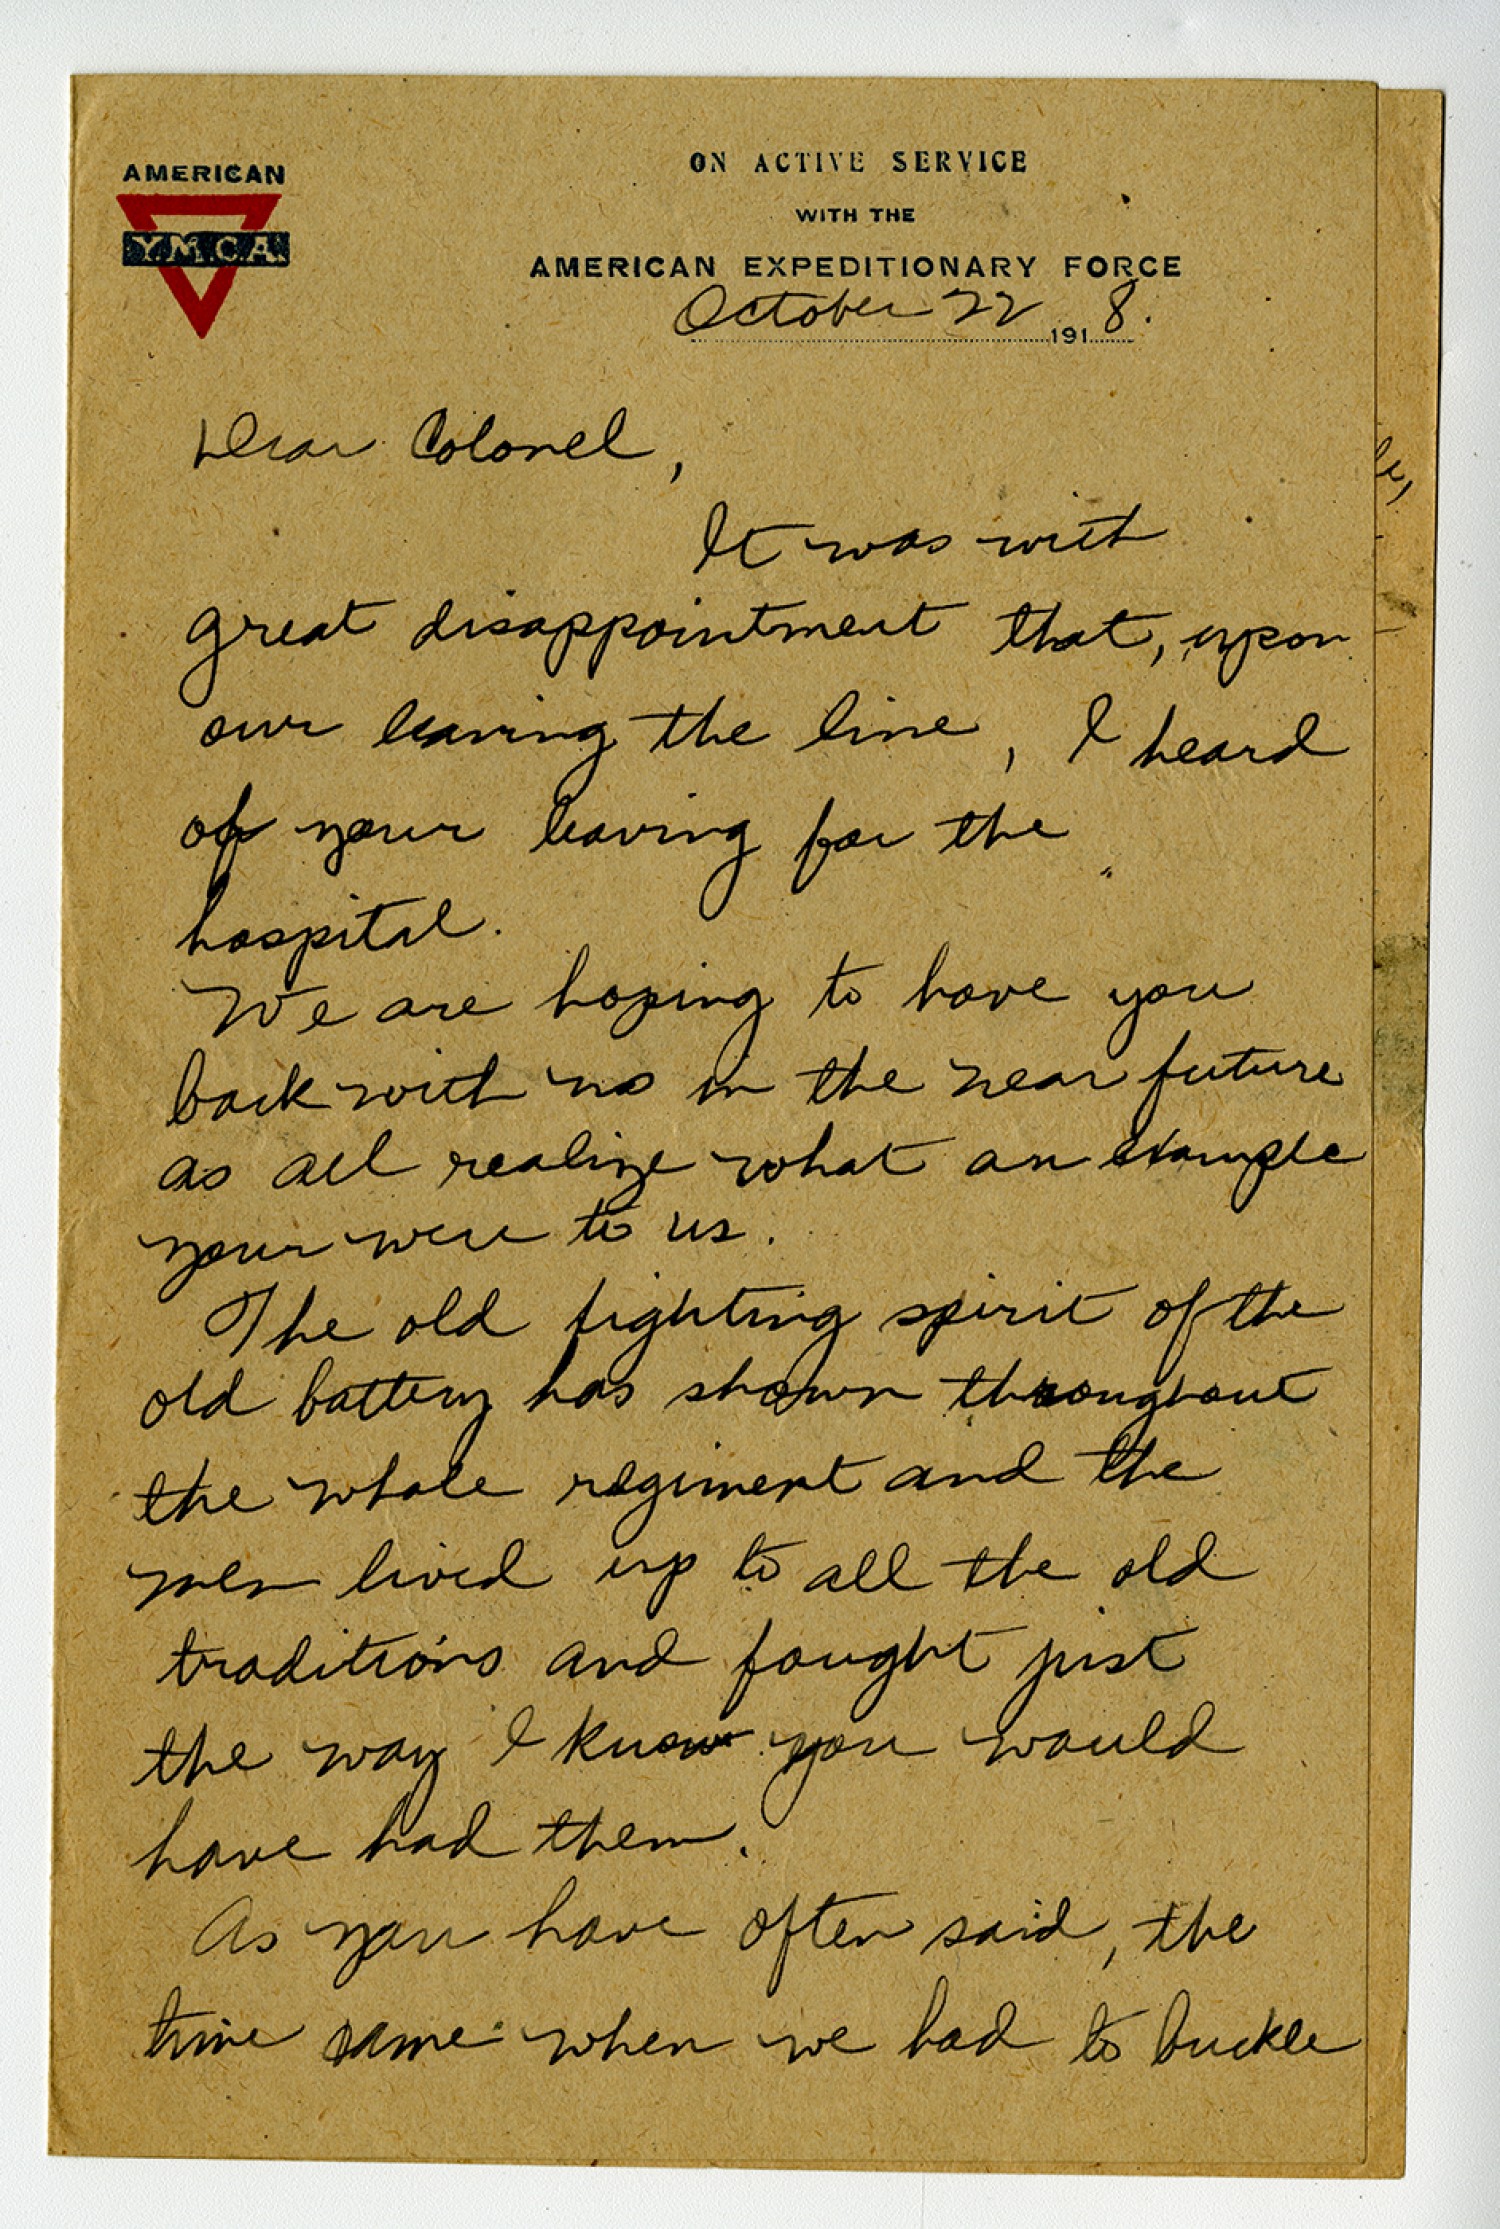 AMERICAN
Y.M.C.A.
ON ACTIVE SERVICE
WITH THE
AMERICAN EXPEDITIONARY FORCE
October 22 1918.
Dear Colonel,
It was with
great disappointment that, upon
our leaving the line, I heard
of your leaving for the
hospital.
We are hoping to have you
back with us in the near future
as all realize what an example
your were to us.
The old fighting spirit of the
old battery has shown throughout
the whole regiment and the
men lived up to all the old
traditions and fought just
the way I know you would
have had them.
As you have often said, the
time came when we had to buckle